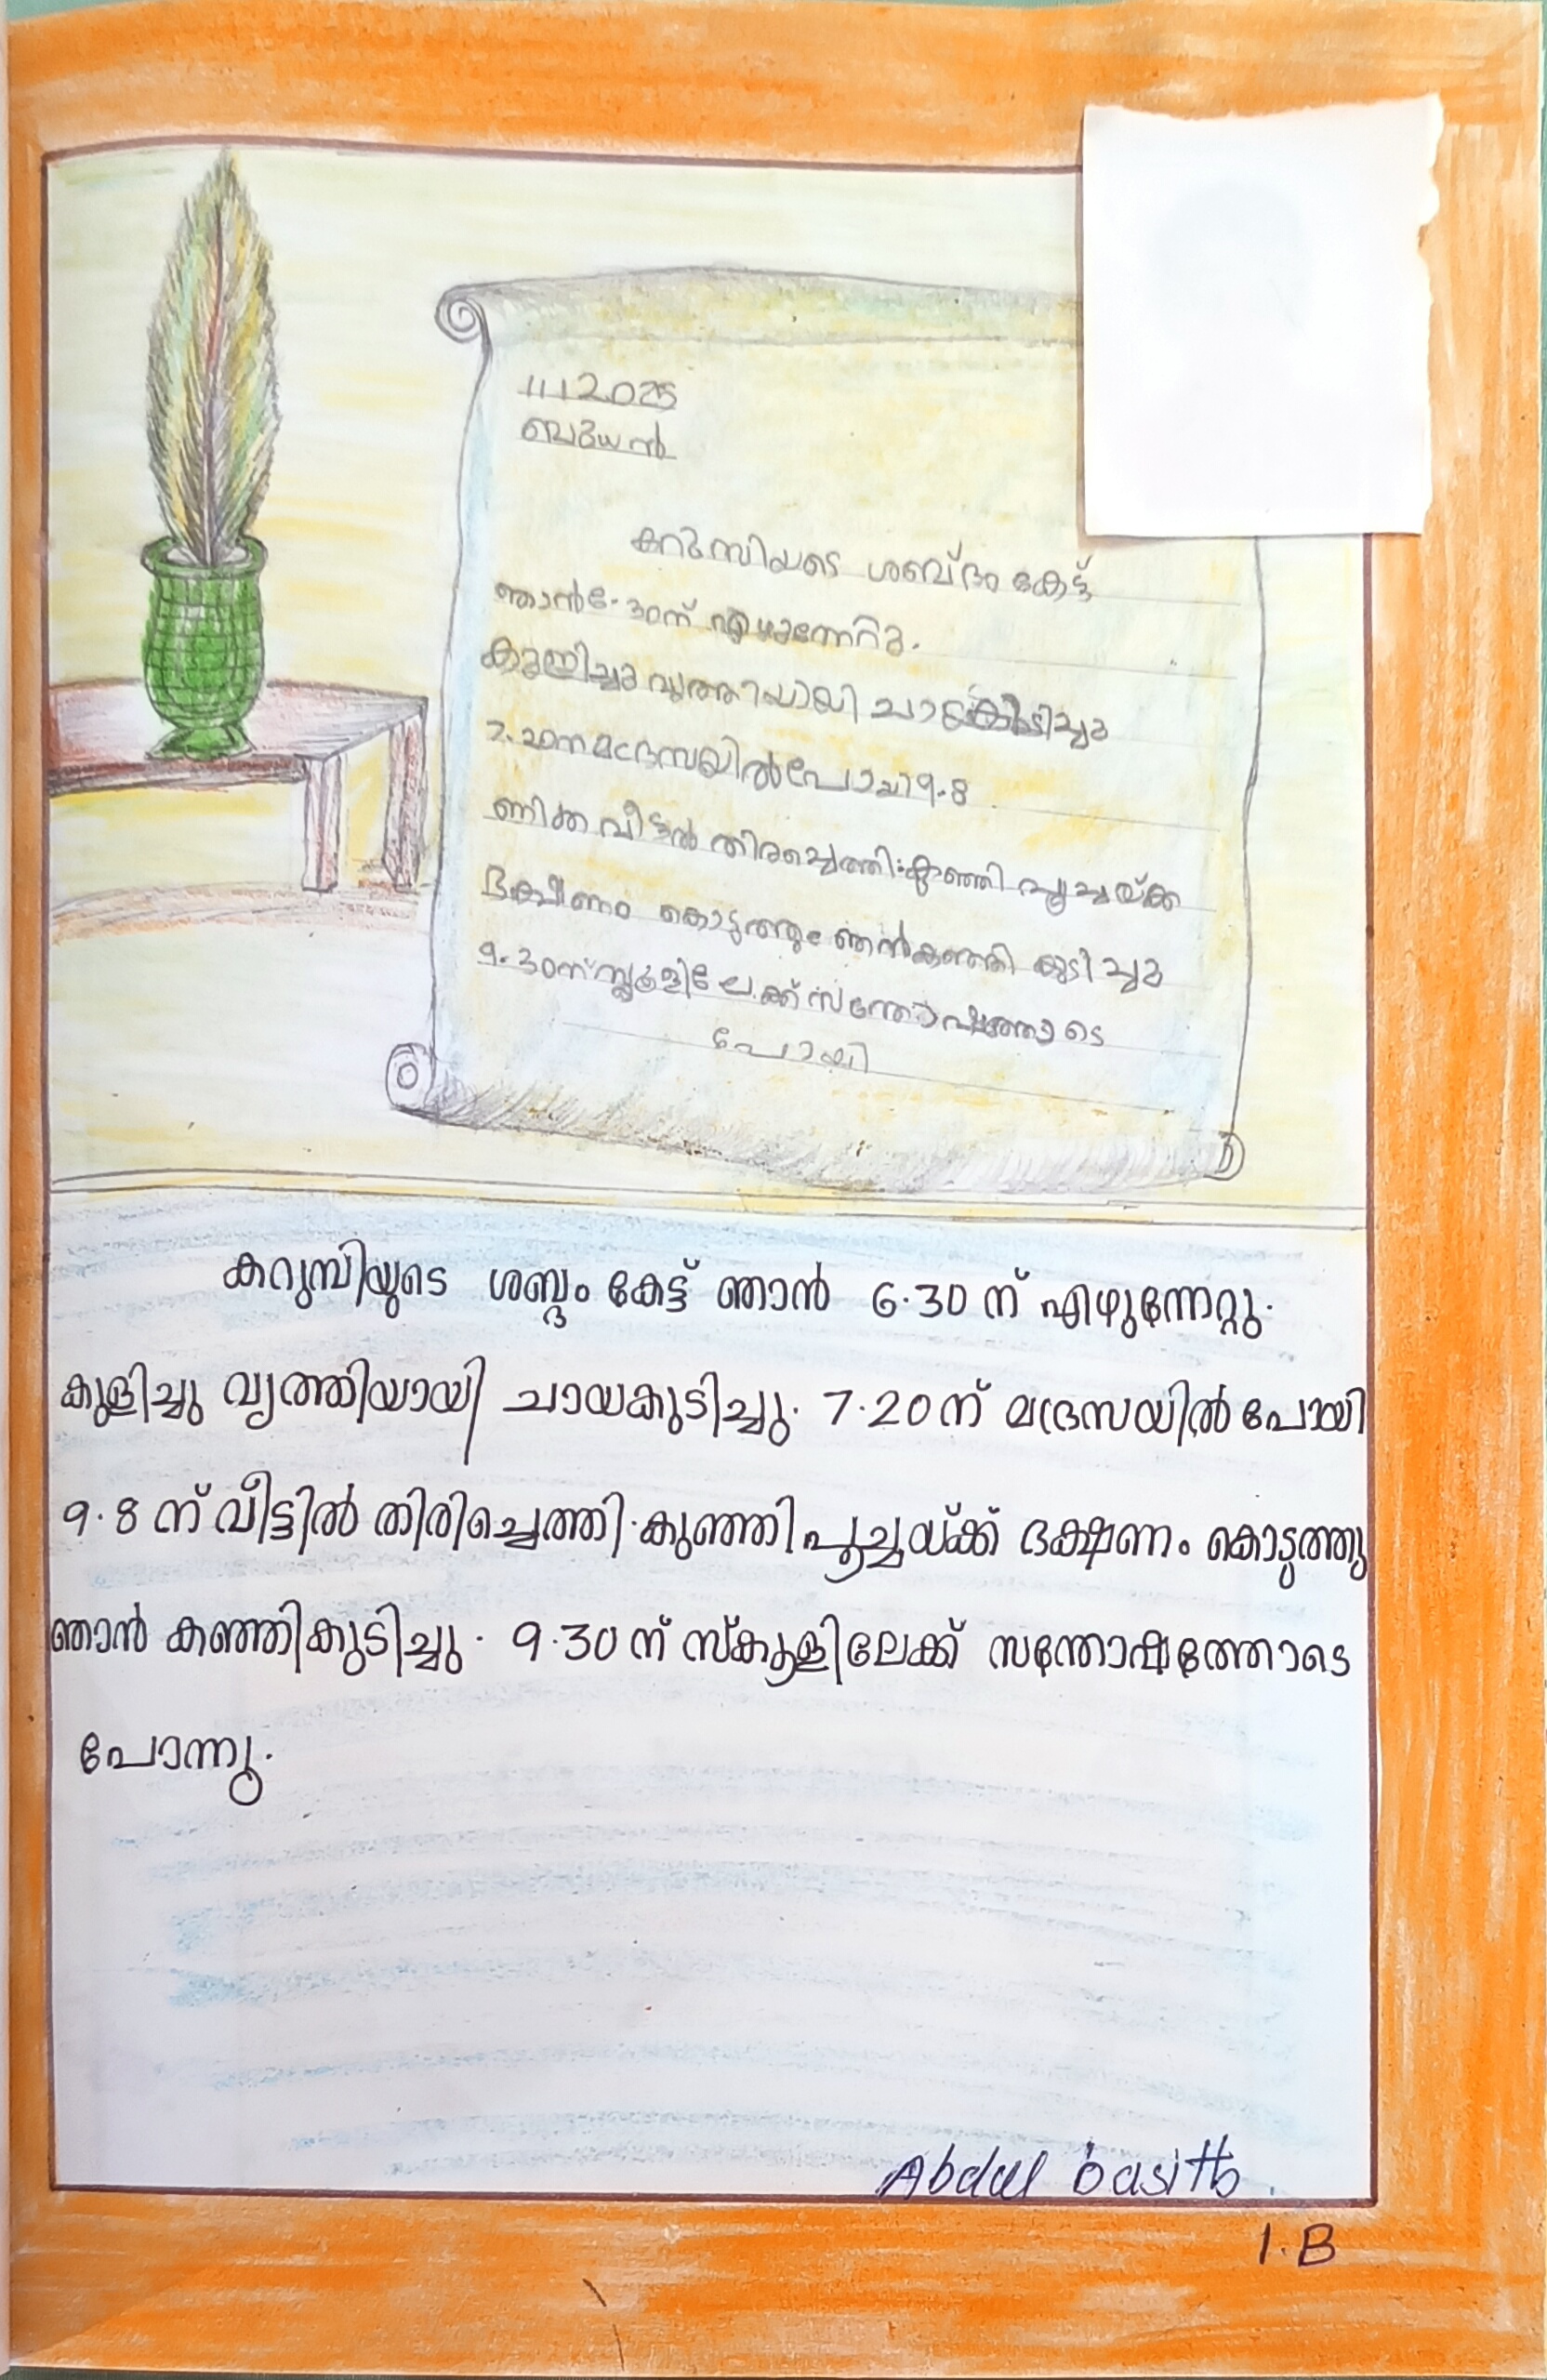 1 1 1 2025
ബുധൻ
കറുമ്പിയടെ ശബ്ദം കേട്ട്
ഞാൻ 6.30ന് എഴുന്നേറ്റു.
കുളിച്ചു വൃത്തിയായി ചായകുടിച്ചു
7.20ന മദ്രസയിൽ പോയി 9.8
ണിക്ക വീട്ടൽ തിരച്ചെത്തി. കുഞ്ഞി പൂച്ചയ്ക്ക
ഭക്ഷണം കൊടുത്തു ഞൻ കഞ്ഞി കുടിച്ചു
9.30ന് സ്കൂളിലേക്ക് സന്തോഷത്തോടെ
പോയി
കറുമ്പിയുടെ ശബ്ദം കേട്ട് ഞാൻ 6.30 ന് എഴുന്നേറ്റു.
കുളിച്ചു വൃത്തിയായി ചായകുടിച്ചു. 7.20 ന് മദ്രസയിൽ പോയി
9.8 ന് വീട്ടിൽ തിരിച്ചെത്തി. കുഞ്ഞി പൂച്ചയ്ക്ക് ഭക്ഷണം കൊടുത്തു
ഞാൻ കഞ്ഞികുടിച്ചു. 9.30 ന് സ്കൂളിലേക്ക് സന്തോഷത്തോടെ
പോന്നു.
Abdul basith
1.B